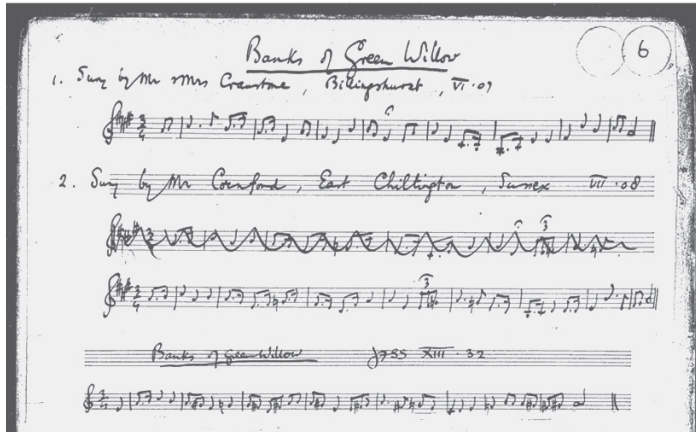 6
Banks of Green Willow
1. Sung by Mr & Mrs Cranstone, Billingshurst, VI.07
3
4
2. Sung by Mr Cornford, East Chiltington, Sussex VII.08
3
3
4
3
Banks of Green Willow JFSS XIII.32
3
4